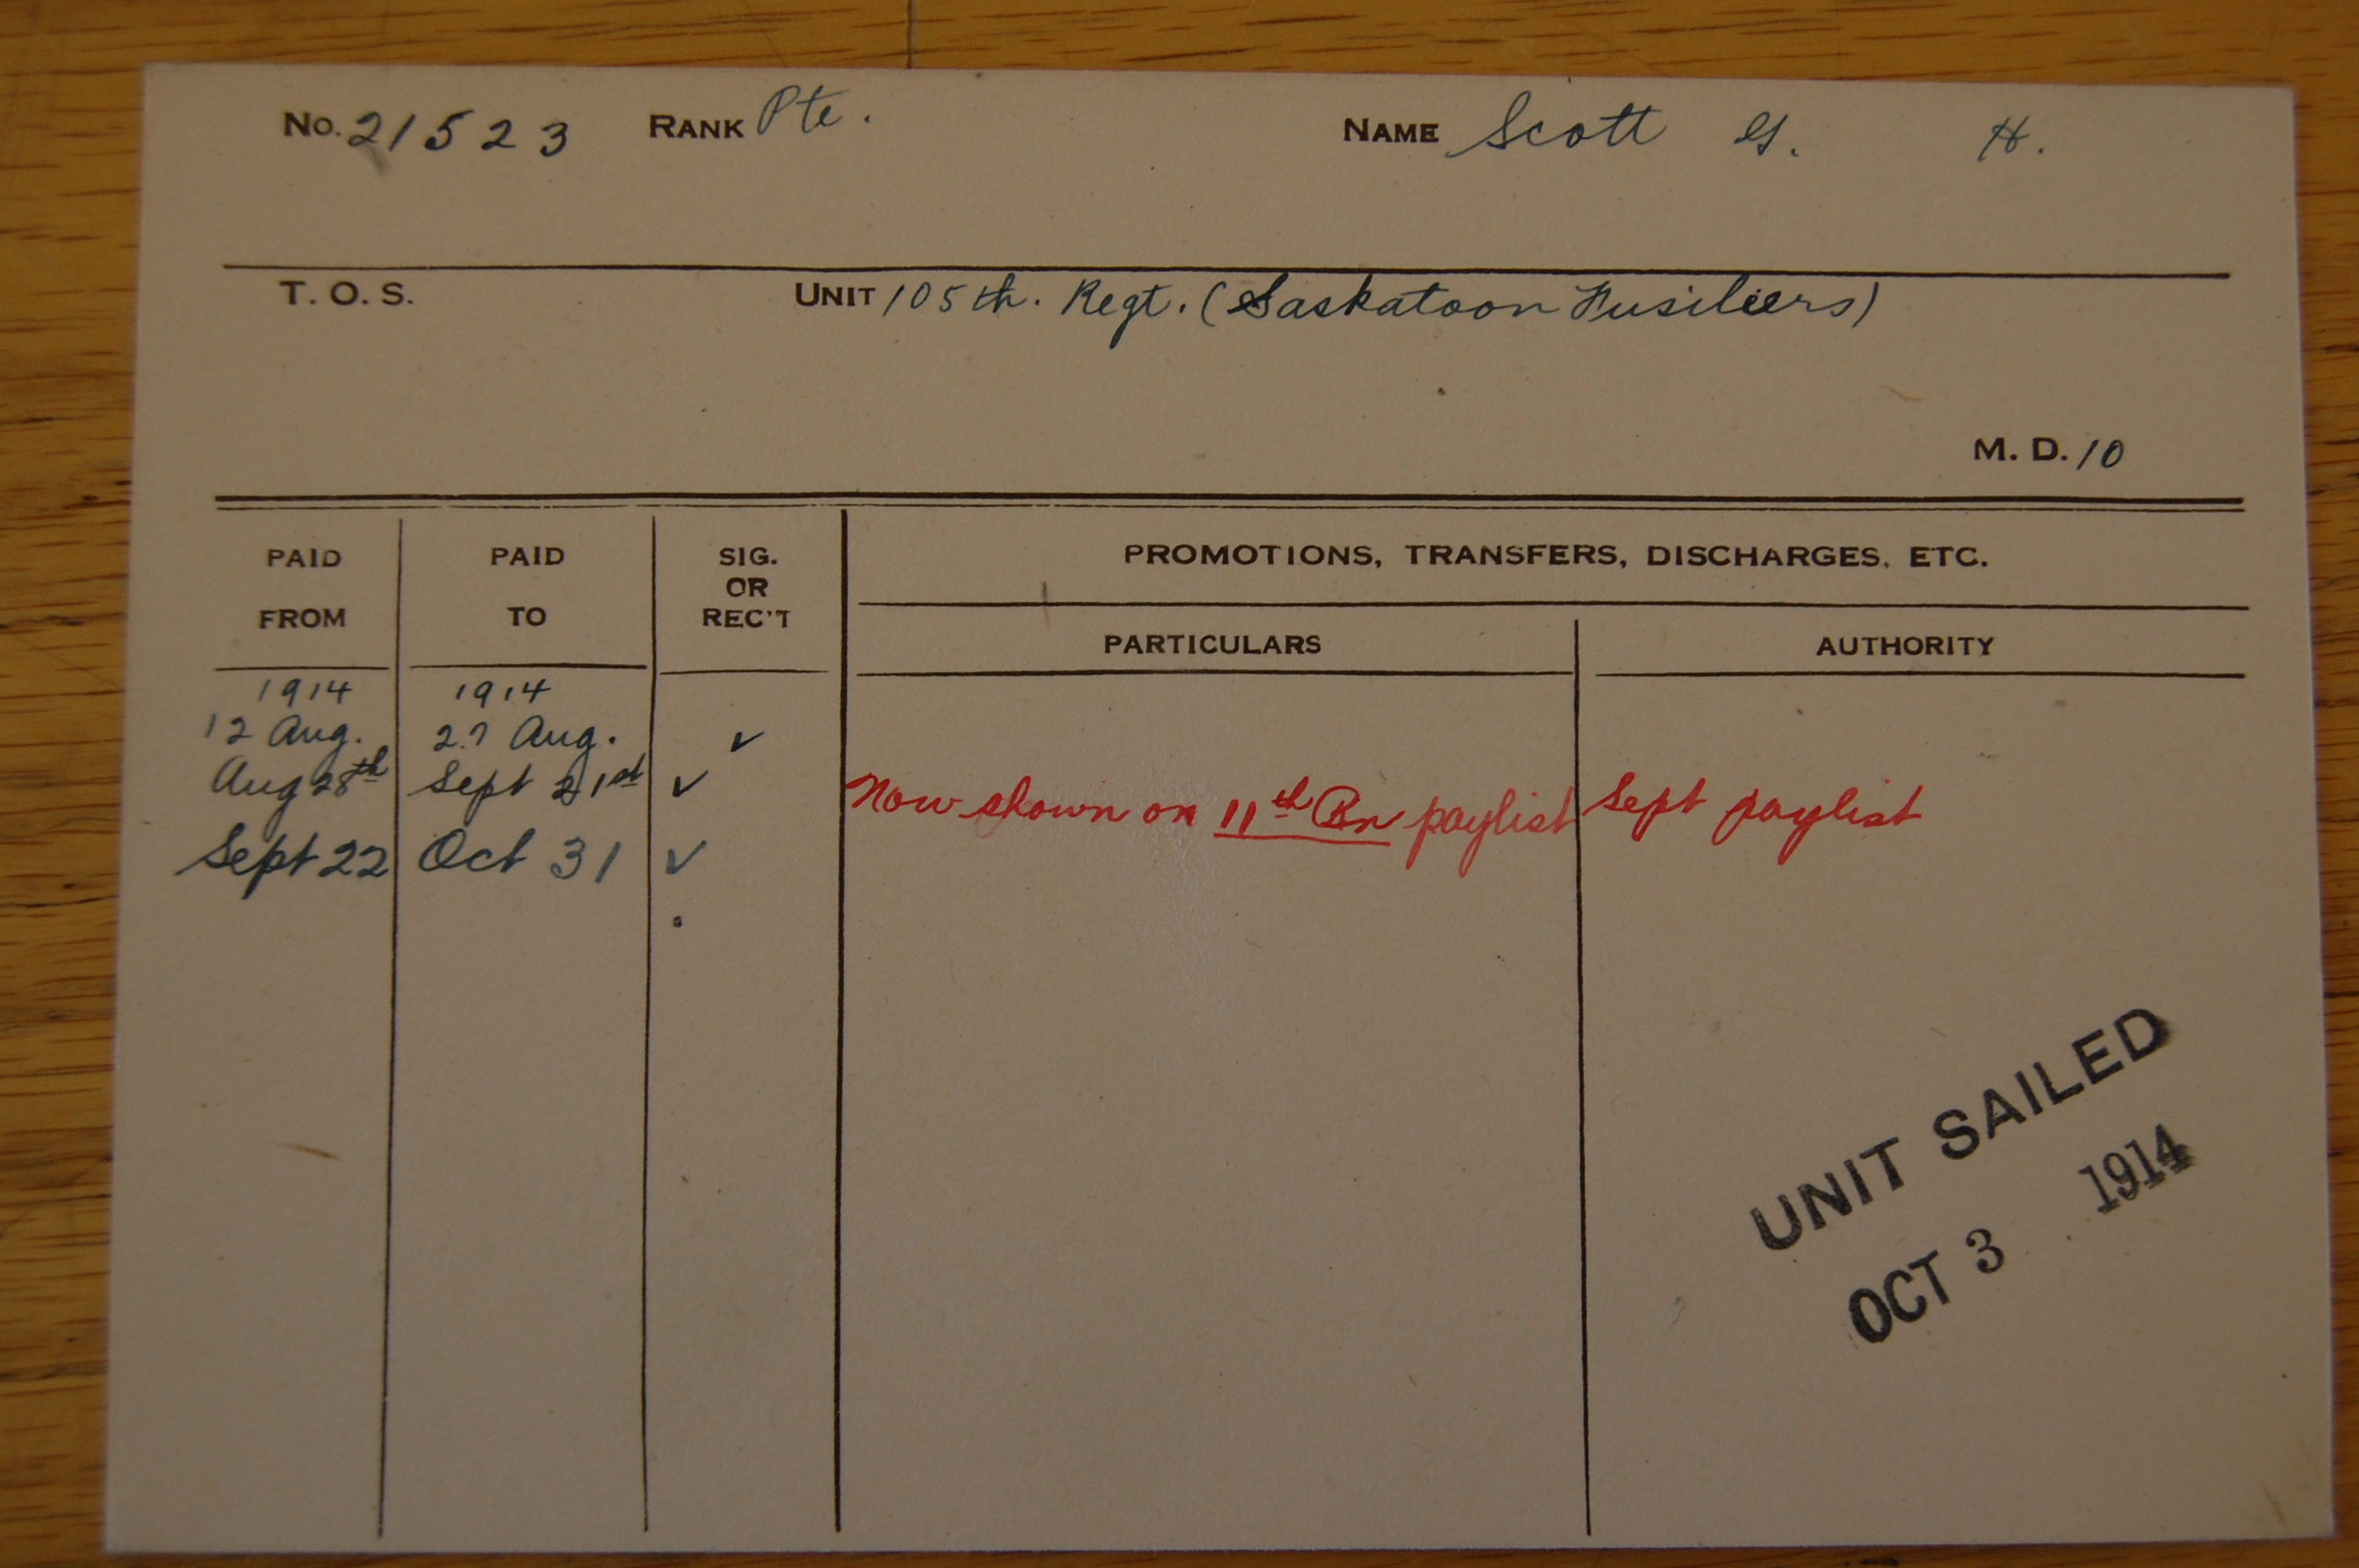 No. 21523 RANK Pte. NAME Scott G. H.
T. O. S. UNIT 105th. Regt. (Saskatoon Fusiliers)
M. D. 10
PAID FROM PAID TO SIG. OR REC'T PROMOTIONS, TRANSFERS, DISCHARGES, ETC.
PARTICULARS AUTHORITY
1914 1914
12 Aug. 27 Aug. ✓
Aug 28th Sept 21st ✓ Now shown on 11th Bn paylist Sept paylist
Sept 22 Oct 31 ✓
UNIT SAILED
OCT 3 1914